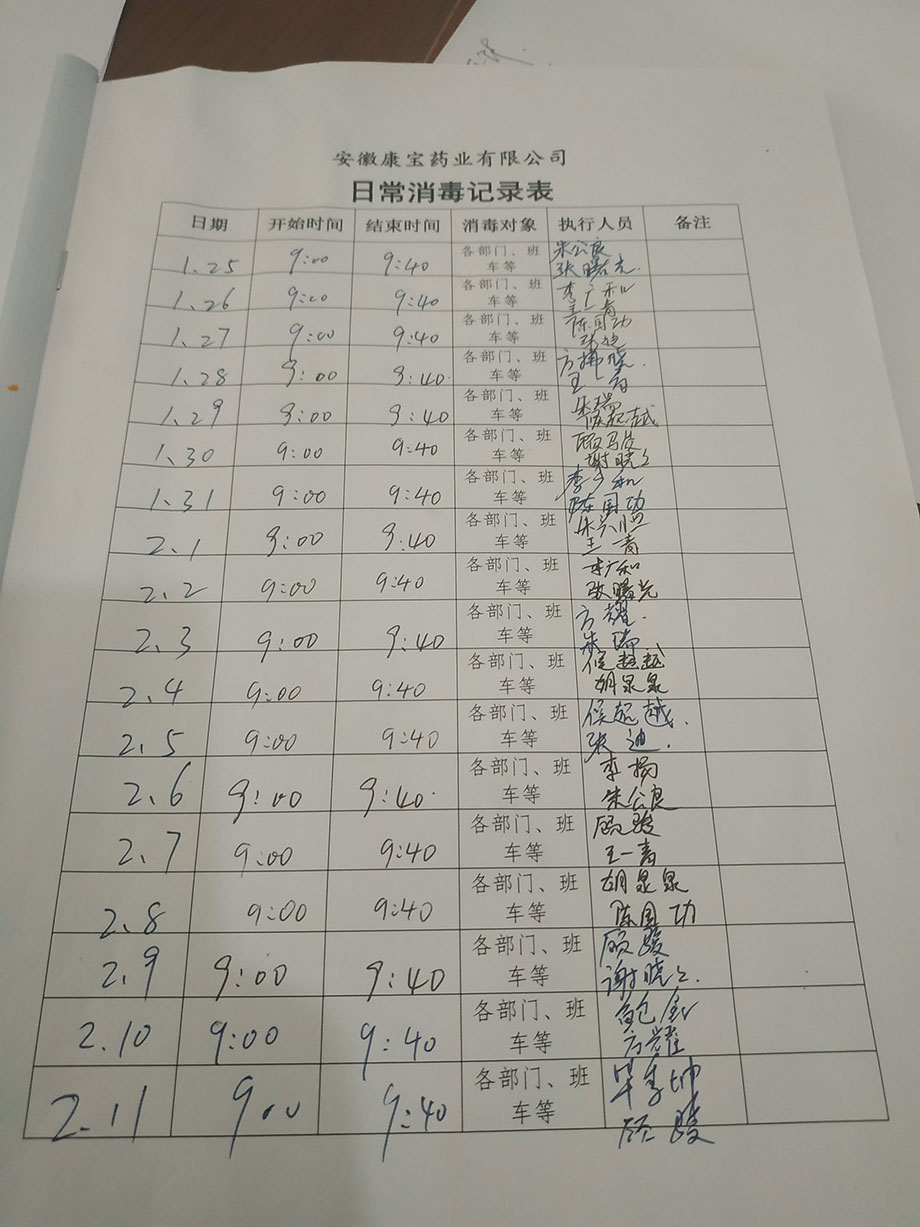 安徽康宝药业有限公司
日常消毒记录表
日期 开始时间 结束时间 消毒对象 执行人员 备注
1.25 9:00 9:40 各部门、班车等 朱公良 张曙光
1.26 9:00 9:40 各部门、班车等 李广和
1.27 9:00 9:40 各部门、班车等 陈国功 张迪
1.28 9:00 9:40 各部门、班车等
1.29 9:00 9:40 各部门、班车等 朱瑞 侯起越
1.30 9:00 9:40 各部门、班车等
1.31 9:00 9:40 各部门、班车等 李广和 陈国功
2.1 9:00 9:40 各部门、班车等 王一青
2.2 9:00 9:40 各部门、班车等 李广和 张曙光
2.3 9:00 9:40 各部门、班车等 方耀 朱瑞
2.4 9:00 9:40 各部门、班车等 侯起越 胡泉泉
2.5 9:00 9:40 各部门、班车等 侯起越 张迪
2.6 9:00 9:40 各部门、班车等 李杨 朱公良
2.7 9:00 9:40 各部门、班车等 顾骏 王一青
2.8 9:00 9:40 各部门、班车等 胡泉泉 陈国功
2.9 9:00 9:40 各部门、班车等 顾骏
2.10 9:00 9:40 各部门、班车等 方耀
2.11 9:00 9:40 各部门、班车等 顾骏